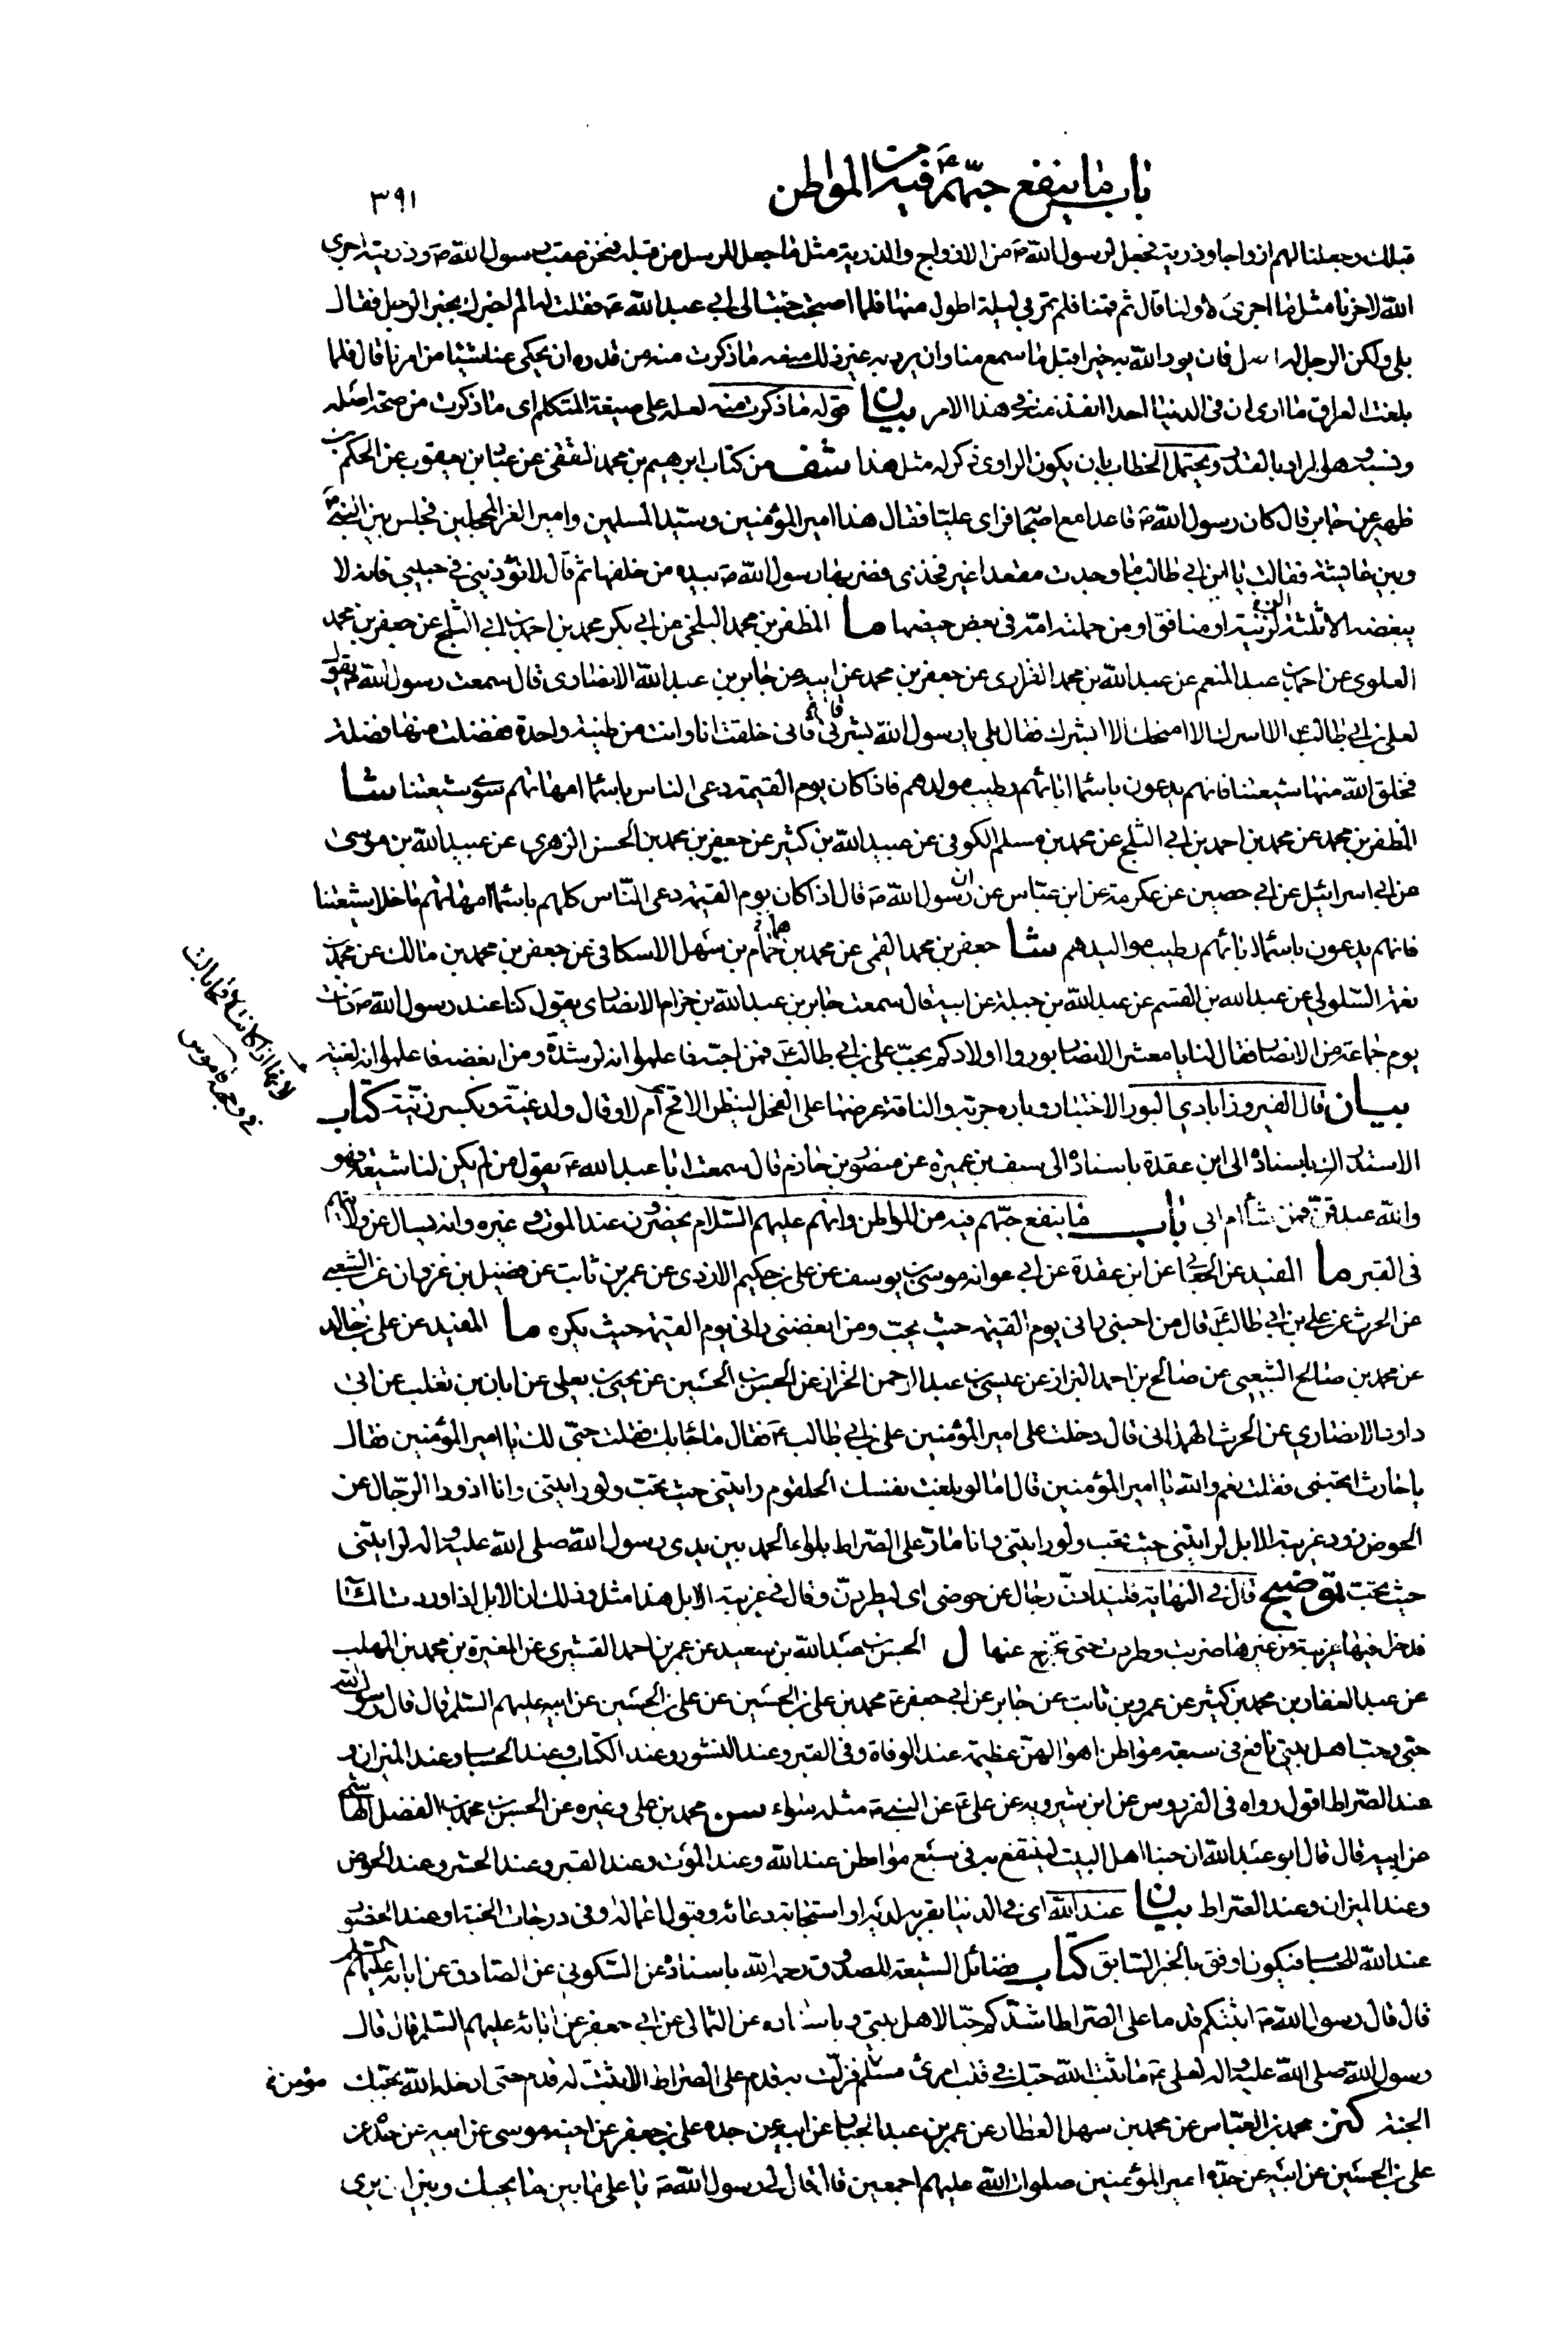 باب ما ينفع حبّهم ع فيه من المواطن
٣٩١
قبلك وجعلنا لهم ازواجا وذرية فجعل لرسول الله ص من الازواج والذرية مثل ما جعل للرسل من قبله فنحن عقب رسول الله ص وذريته اجرى
الله لاخرنا مثل ما اجرى لاولنا قال ثم قمنا فلم تمر بي ليلة اطول منها فلما اصبحت جئت الى ابي عبد الله ع فقلت له الم اخبرك بخبر الرجل فقال
بلى ولكن الرجل له اصل فان يرد الله به خيرا قبل ما سمع منا وان يرد به غير ذلك منعه ما ذكرت منه من قدره ان يحكى عنا شيئا من امرنا قال فلما
بلغت العراق ما ارى ان فى الدنيا احدا انفذ منه في هذا الامر بيان قوله ما ذكرت منه لعله على صيغة المتكلم اى ما ذكرت من صحة اصله
ونسبه هو المراد بالقدر ويحتمل الخطاب بان يكون الراوى ذكر له مثل هذا شف من كتاب ابرهيم بن محمد الثقفى عن عباد بن يعقوب عن الحكم بن
ظهير عن جابر قال كان رسول الله ص قاعدا مع اصحابه فراى عليا فقال هذا امير المؤمنين وسيد المسلمين وامير الغر المحجلين فجلس بين النبي ص
وبين عايشة فقالت يا ابن ابي طالب ما وجدت مقعدا غير فخذى فضربها رسول الله ص بيده من خلفها ثم قال لا تؤذيني في حبيبي فانه لا
يبغضه الا ثلثة لزنية او منافق او من حملته امه فى بعض حيضها ما المظفر بن محمد البلخى عن ابي بكر محمد بن احمد بن ابي الثلج عن جعفر بن محمد
العلوى عن احمد بن عبد المنعم عن عبد الله بن محمد الفزارى عن جعفر بن محمد عن ابيه عن جابر بن عبد الله الانصارى قال سمعت رسول الله ص يقول
لعلى بن ابي طالب ع الا اسرك الا امنحك الا ابشرك فقال بلى يا رسول الله بشرنى قال فانى خلقت انا وانت من طينة واحدة ففضلت منها فضلة
فخلق الله منها شيعتنا فانهم يدعون باسماء ابائهم لطيب مولدهم فاذا كان يوم القيمة دعى الناس باسماء امهاتهم سوى شيعتنا شا
المظفر بن محمد عن محمد بن احمد بن ابي الثلج عن محمد بن مسلم الكوفى عن عبيد الله بن كثير عن جعفر بن محمد بن الحسن الزهرى عن عبيد الله بن موسى
عن اسرائيل عن ابي حصين عن عكرمة عن ابن عباس عن ان رسول الله ص قال اذا كان يوم القيمة دعى الناس كلهم باسماء امهاتهم ما خلا شيعتنا
فانهم يدعون باسماء ابائهم لطيب مواليدهم شا جعفر بن محمد القمى عن محمد بن همام بن سهل الاسكافى عن جعفر بن محمد بن مالك عن محمد بن
نعمة السلولى عن عبد الله بن القسم عن عبد الله بن جبلة عن ابيه قال سمعت جابر بن عبد الله بن حزام الانصارى يقول كنا عند رسول الله ص ذات
يوم جماعة من الانصار فقال لنا يا معشر الانصار بوروا اولادكم بحب على بن ابي طالب ع فمن احبه فاعلموا انه لرشدة ومن ابغضه فاعلموا انه لغية
بيان قال الفيروزابادي البور الاختبار وباره جربه والناقة عرضها على الفحل لينظر الاقح ام لا وقال ولد غية ويكسر زنية كتاب
الاستدراك باسناده الى ابن عقدة باسناده الى سيف بن عميرة عن منصور بن حازم قال سمعت ابا عبد الله ع يقول من لم يكن لنا شيعة فهو
والله عبد قن فمن شأ ام ابى باب ما ينفع حبّهم فيه من المواطن وانهم عليهم السلام يحضرون عند الموت وغيره وانه يسال عن ولايتهم
فى القبر ما المفيد عن الجعابى عن ابن عقدة عن ابي عوانه موسى بن يوسف عن على بن حكيم الازدى عن عمر بن ثابت عن فضيل بن غزوان عن الشعبي
عن الحرث عن على بن ابي طالب ع قال من احبنى رانى يوم القيمة حيث يحب ومن ابغضنى رانى يوم القيمة حيث يكره ما المفيد عن على بن خالد
عن محمد بن صالح السبيعى عن صالح بن احمد البزاز عن عيسى بن عبد الرحمن الخزاز عن الحسن بن الحسين عن يحيى بن يعلى عن ابان بن تغلب عن ابى
داود الانصارى عن الحرث الهمدانى قال دخلت على امير المؤمنين على بن ابي طالب ع فقال ما جاء بك فقلت حبّى لك يا امير المؤمنين فقال
يا حارث اتحبنى فقلت نعم والله يا امير المؤمنين قال اما لو بلغت نفسك الحلقوم رايتنى حيث تحب ولو رايتنى وانا اذود الرجال عن
الحوض ذود غريبة الابل لرايتنى حيث تحب ولو رايتنى وانا مار على الصراط بلواء الحمد بين يدى رسول الله صلى الله عليه واله لرايتنى
حيث تحب توضيح قال في النهاية فليذادن رجال عن حوضى اى ليطردن وقال في غريبة الابل هذا مثل وذلك ان الابل اذا وردت الماء
فدخل فيها غريبة من غيرها ضربت وطردت حتى تخرج عنها ل الحسن بن عبد الله بن سعيد عن عمر بن احمد القشيرى عن المغيرة بن محمد بن المهلب
عن عبد الغفار بن محمد بن كثير عن عمرو بن ثابت عن جابر عن ابي جعفر ع محمد بن على بن الحسين عن على بن الحسين عن ابيه عليهم السلم قال قال رسول الله
حبى وحب اهل بيتى نافع فى سبعة مواطن اهوالهن عظيمة عند الوفاة وفى القبر وعند النشور وعند الكتاب وعند الحساب وعند الميزان و
عند الصراط اقول رواه فى الفردوس عن ابن شيرويه عن على ع عن النبي ص مثله سواء سن محمد بن على وغيره عن الحسن بن محمد بن الفضل الهاشمى
عن ابيه قال قال ابو عبد الله ان حبنا اهل البيت لينتفع به فى سبع مواطن عند الله وعند الموت وعند القبر وعند الحشر وعند الحوض
وعند الميزان وعند الصراط بيان عند الله اى في الدنيا بقربه لديه او استجابة دعائه وقبول اعماله وفى درجات الجنة او عند الحضور
عند الله للحساب فيكون اوفق بالخبر السابق كتاب فضائل الشيعة للصدوق رحمه الله باسناده عن السكونى عن الصادق عن ابائه عليهم السلم
قال قال رسول الله ص اثبتكم قدما على الصراط اشدكم حبا لاهل بيتى وباسناده عن الثمالى عن ابي جعفر عن ابائه عليهم السلم قال قال
رسول الله صلى الله عليه واله لعلى ع ما ثبت الله حبك في قلب امرئ مسلم فزلت به قدم على الصراط الا ثبت له قدم حتى ادخله الله بحبك
مؤمن
الجنة كنز محمد بن العباس عن محمد بن سهل العطار عن عمر بن عبد الجبار عن ابيه عن جده على بن جعفر عن اخيه موسى عن ابيه عن جده عن
على بن الحسين عن ابيه عن جده امير المؤمنين صلوات الله عليهم اجمعين قال قال لى رسول الله ص يا على ما بين من يحبك وبين ان يرى